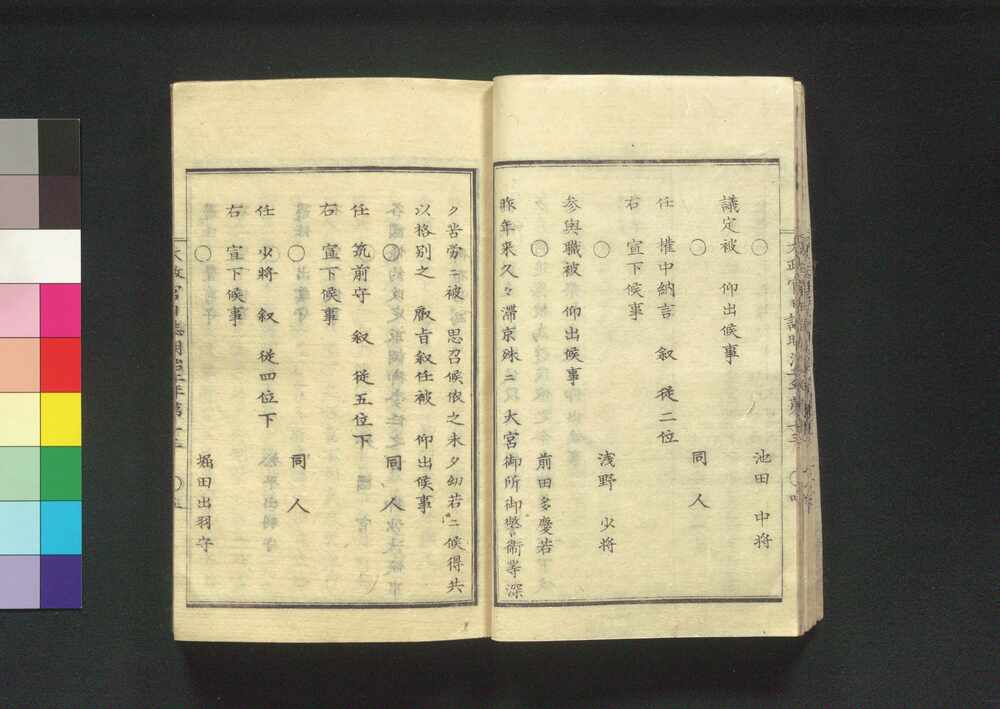 ○ 池田 中将
議定被 仰出候事
○ 同 人
任 権中納言 叙 従二位
右 宣下候事
○ 浅野 少将
参與職被 仰出候事
○ 前田多慶若
昨年来久々滞京殊ニ 大宮御所御警衛等深
ク苦労ニ被 思召候依之未タ幼若ニ候得共
以格别之 叡旨叙任被 仰出候事
○ 同 人
任 筑前守 叙 従五位下
右 宣下候事
○ 同 人
任 少将 叙 従四位下
右 宣下候事
○ 堀田出羽守